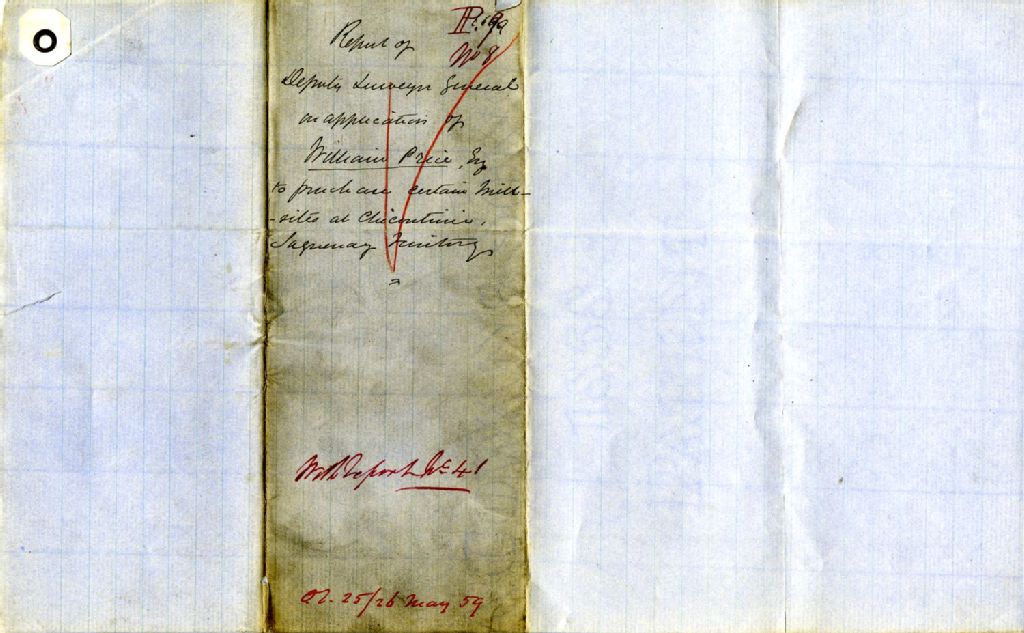 O
P. 699
No 8
Report of
Deputy Surveyor General
on application of
William Price, Esq
to purchase certain Mill-
-sites at Chicoutimi,
Saguenay Territory
With Report No 41
25/26 May 59